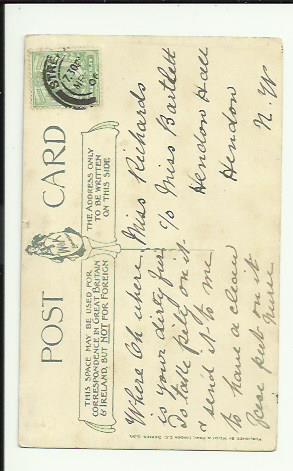 POST CARD
THIS SPACE MAY BE USED FOR
CORRESPONDENCE IN GREAT BRITAIN
& IRELAND, BUT NOT FOR FOREIGN
THE ADDRESS ONLY
TO BE WRITTEN
ON THIS SIDE
STRE
7.30P
Where Oh where
is your dirty fur
Do take pity on it
& send it to me
to have a clean
face put on it
Miss Richards
c/o Miss Bartlett
Hendon Hall
Hendon
N. W
PUBLISHED BY LONDON E.C. SERIES